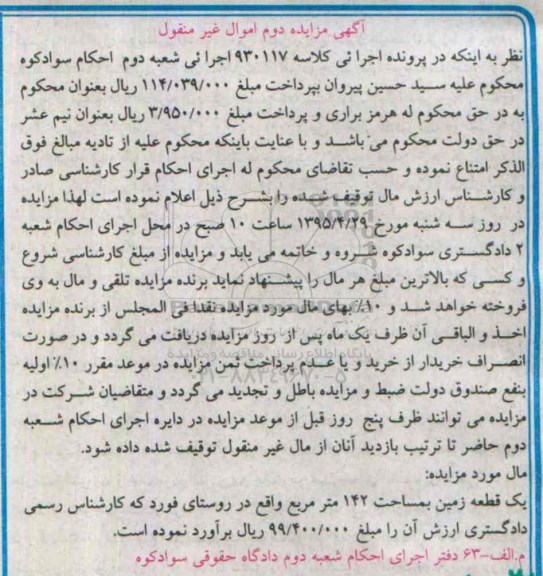 آگهی مزایده دوم اموال غیر منقول
نظر به اینکه در پرونده اجرا ئی کلاسه ۹۳۰۱۱۷ اجرا ئی شعبه دوم احکام سوادکوه
محکوم علیه سید حسین پیروان بپرداخت مبلغ ۱۱۴/۰۳۹/۰۰۰ ریال بعنوان محکوم
به در حق محکوم له هرمز براری و پرداخت مبلغ ۳/۹۵۰/۰۰۰ ریال بعنوان نیم عشر
در حق دولت محکوم می باشد و با عنایت باینکه محکوم علیه از تادیه مبالغ فوق
الذکر امتناع نموده و حسب تقاضای محکوم له اجرای احکام قرار کارشناسی صادر
و کارشناس ارزش مال توقیف شده را بشرح ذیل اعلام نموده است لهذا مزایده
در روز سه شنبه مورخ ۱۳۹۵/۴/۲۹ ساعت ۱۰ صبح در محل اجرای احکام شعبه
۲ دادگستری سوادکوه شروه و خاتمه می یابد و مزایده از مبلغ کارشناسی شروع
و کسی که بالاترین مبلغ هر مال را پیشنهاد نماید برنده مزایده تلقی و مال به وی
فروخته خواهد شد و ۱۰٪ بهای مال مورد مزایده نقدا فی المجلس از برنده مزایده
اخذ و الباقی آن ظرف یک ماه پس از روز مزایده دریافت می گردد و در صورت
انصراف خریدار از خرید و یا عدم پرداخت ثمن مزایده در موعد مقرر ۱۰٪ اولیه
بنفع صندوق دولت ضبط و مزایده باطل و تجدید می گردد و متقاضیان شرکت در
مزایده می توانند ظرف پنج روز قبل از موعد مزایده در دایره اجرای احکام شعبه
دوم حاضر تا ترتیب بازدید آنان از مال غیر منقول توقیف شده داده شود.
مال مورد مزایده:
یک قطعه زمین بمساحت ۱۴۲ متر مربع واقع در روستای فورد که کارشناس رسمی
دادگستری ارزش آن را مبلغ ۹۹/۴۰۰/۰۰۰ ریال برآورد نموده است.
م.الف-۶۳ دفتر اجرای احکام شعبه دوم دادگاه حقوقی سوادکوه